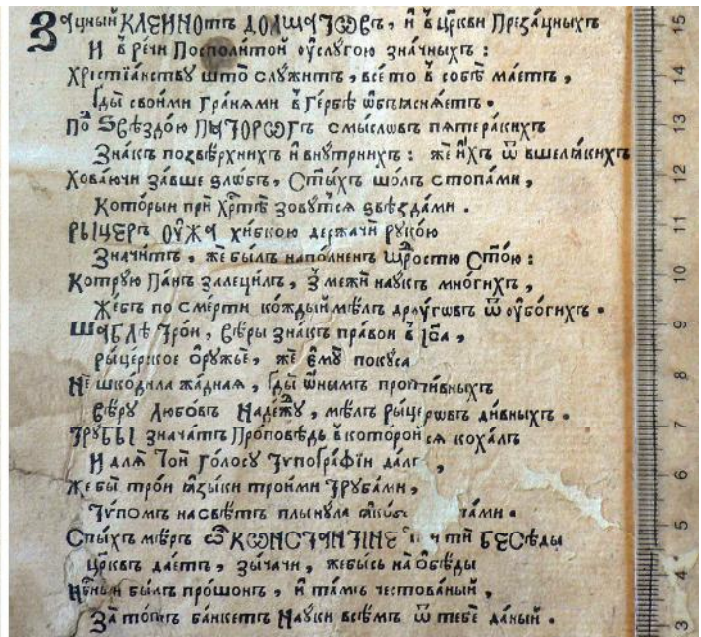 Зацный КЛЕЙНОтъ ДОЛЩАТѠВЪ, и в Цр҃кви Презацныхъ
И в речи Посполитой ѹслугою значныхъ :
Хрістїанству што служитъ, все то в собѣ маетъ,
Гды своими гранями в Гербѣ ѡбъясняетъ.
По ЅВѢЗДОЮ ПЯТОРОГЪ смысловъ пятеракихъ
Знакъ позвѣрхнихъ и внутрнихъ : же ихъ ѿ вшелѧкихъ
Ховаючи завше ѕлѡвъ, Ст҃ыхъ шолъ стопами,
Которыи при Хр҃тѣ зовутся ѕвѣздами.
РЫЦЕРЪ ОУЖА хибкою держачи рукою
Значитъ, же былъ наполненъ Мдростю Ст҃ою :
Которую Панъ залецилъ, з межи наукъ многихъ,
Жебъ по смерти кождый мѣлъ друговъ ѿ ѹбогихъ.
ШАБЛѢ Трои, Вѣры знакъ правои в
рыцерское оружье, же ему покуса
Не шкодила жадная, Гды ѡнымъ противныхъ
Вѣру Любовъ Надежу, мѣлъ рыцеровъ дивныхъ.
ТРУБЫ значатъ Проповѣдь в которой ся кохалъ
И для Той Голосу Тѵпоґрафїи далъ,
Же бы трои языки троими Трубами,
Тѵпомъ на свѣтъ плынула
Спыхъ мѣръ КѠНСТАНТІНЕ тй БЕСѣды
Церквъ даетъ, зычачи, жебысь на Обѣды
Нбныи былъ прошонъ, и тамъ честованый,
За тотъ банкетъ Науки всѣмъ ѿ тебе даный.